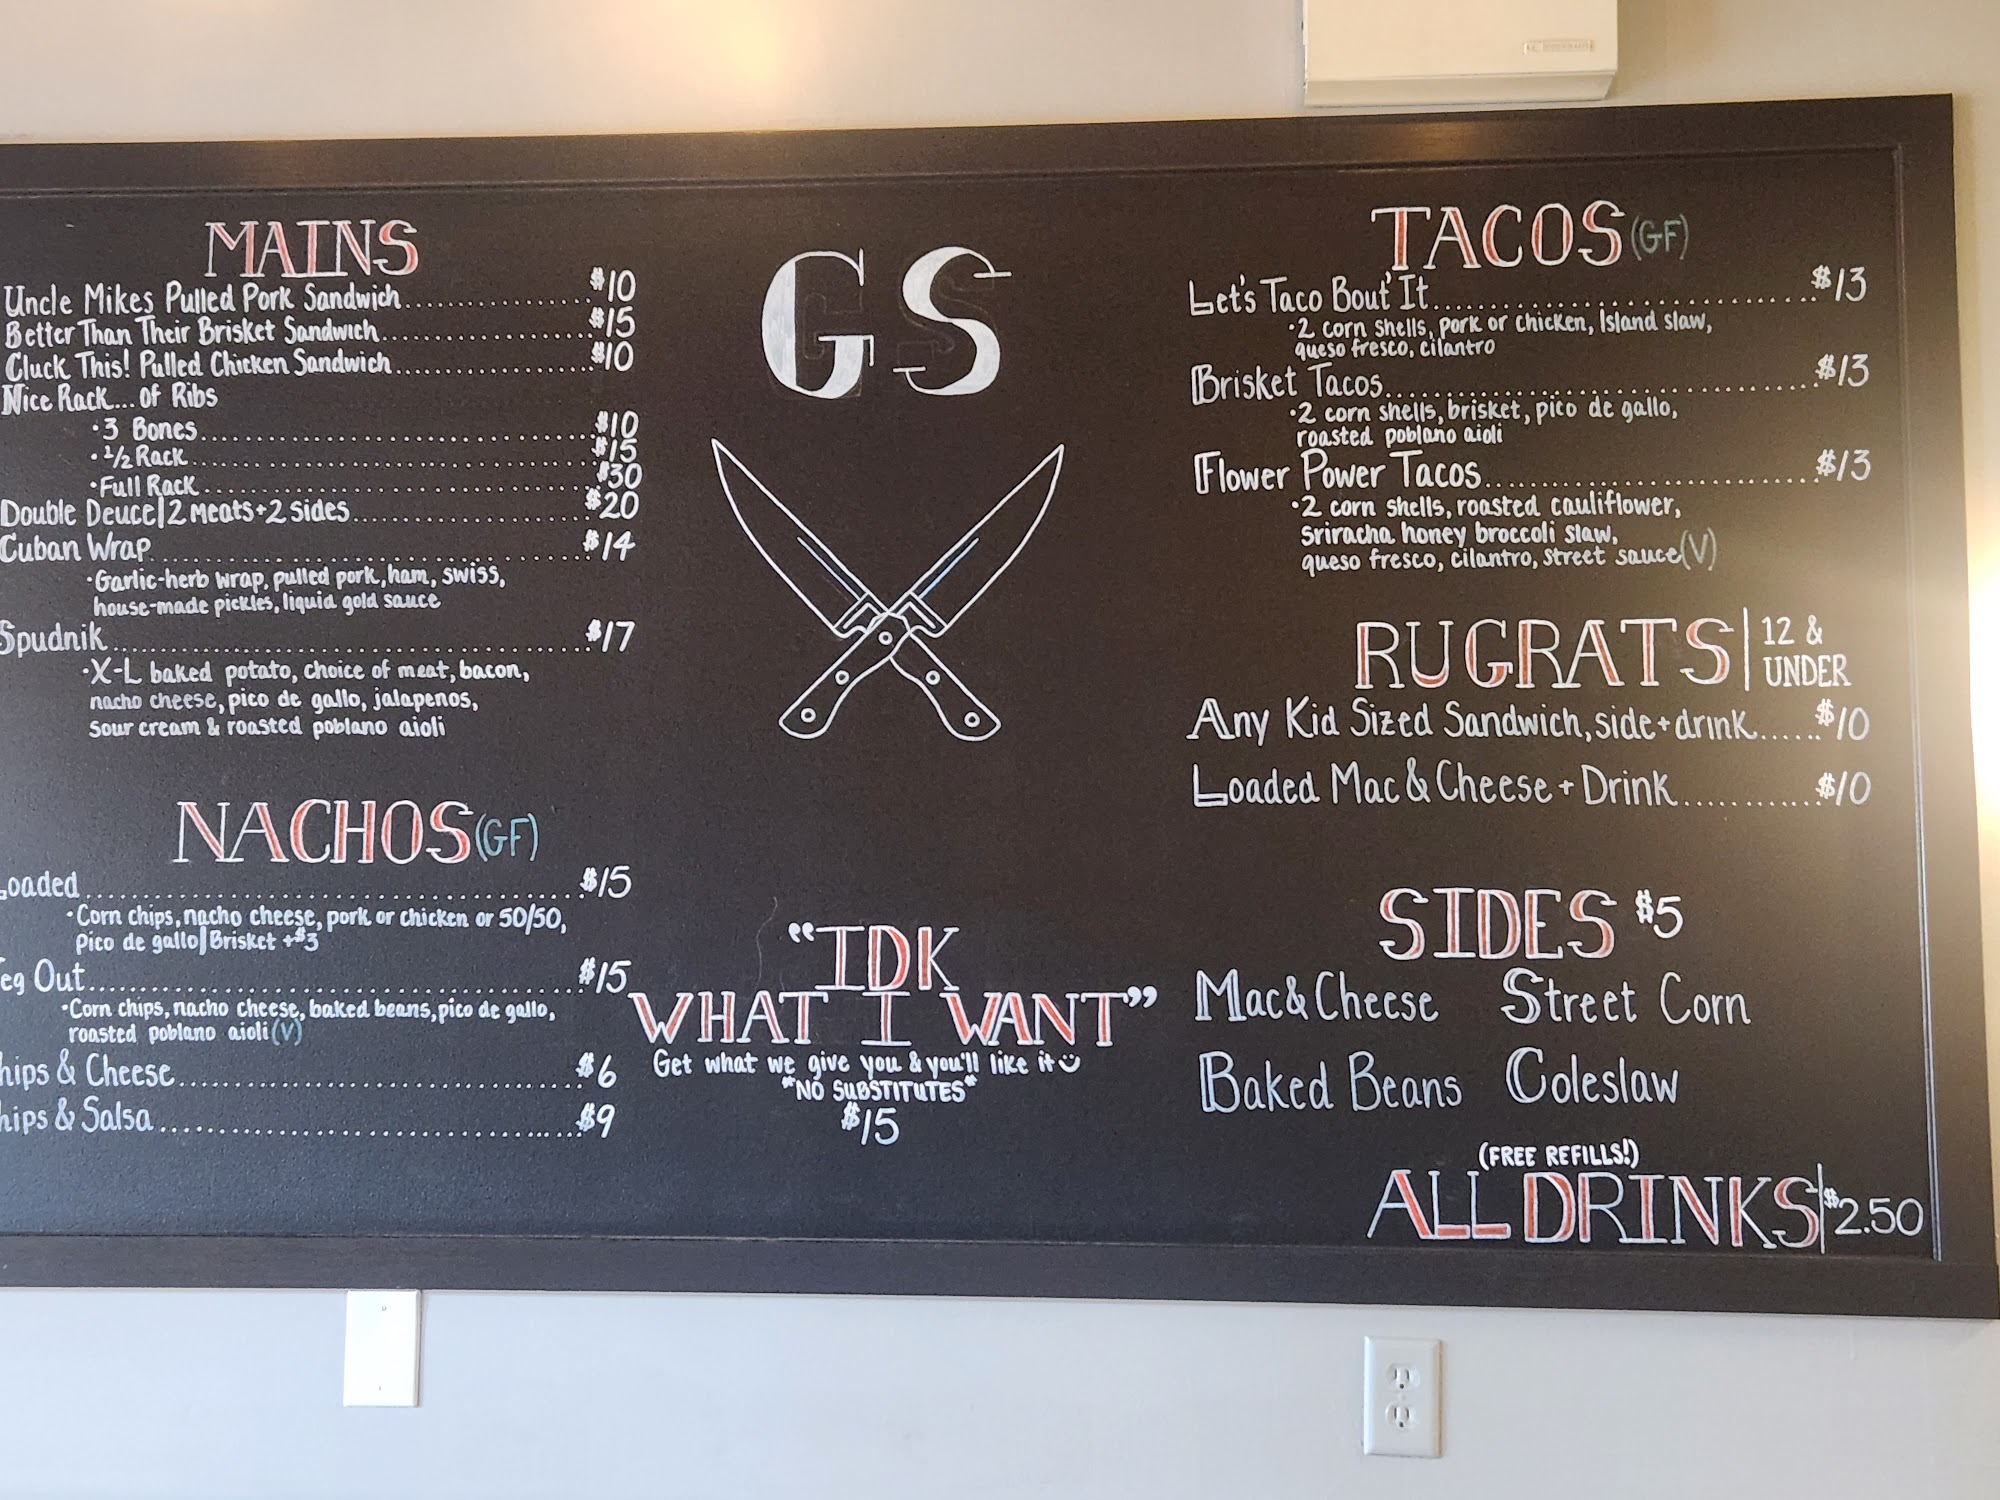 MAINS
Uncle Mikes Pulled Pork Sandwich.......... $10
Better Than Their Brisket Sandwich.......... $15
Cluck This! Pulled Chicken Sandwich.......... $10
Nice Rack... of Ribs
•3 Bones.......... $10
•1/2 Rack.......... $15
•Full Rack.......... $30
Double Deuce|2 meats+2 sides.......... $20
Cuban Wrap.......... $14
•Garlic-herb wrap, pulled pork, ham, swiss,
house-made pickles, liquid gold sauce
Spudnik.......... $17
•X-L baked potato, choice of meat, bacon,
nacho cheese, pico de gallo, jalapenos,
sour cream & roasted poblano aioli
NACHOS (GF)
Loaded.......... $15
•Corn chips, nacho cheese, pork or chicken or 50/50,
pico de gallo|Brisket +$3
eg Out.......... $15
•Corn chips, nacho cheese, baked beans, pico de gallo,
roasted poblano aioli (V)
hips & Cheese.......... $6
hips & Salsa.......... $9
GS
"IDK
WHAT I WANT"
Get what we give you & you'll like it
*NO SUBSTITUTES*
$15
TACOS (GF)
Let's Taco Bout' It.......... $13
•2 corn shells, pork or chicken, Island slaw,
queso fresco, cilantro
Brisket Tacos.......... $13
•2 corn shells, brisket, pico de gallo,
roasted poblano aioli
Flower Power Tacos.......... $13
•2 corn shells, roasted cauliflower,
sriracha honey broccoli slaw,
queso fresco, cilantro, street sauce (V)
RUGRATS | 12 &
UNDER
Any Kid Sized Sandwich, side + drink...... $10
Loaded Mac & Cheese + Drink.......... $10
SIDES $5
Mac & Cheese Street Corn
Baked Beans Coleslaw
(FREE REFILLS!)
ALL DRINKS | $2.50